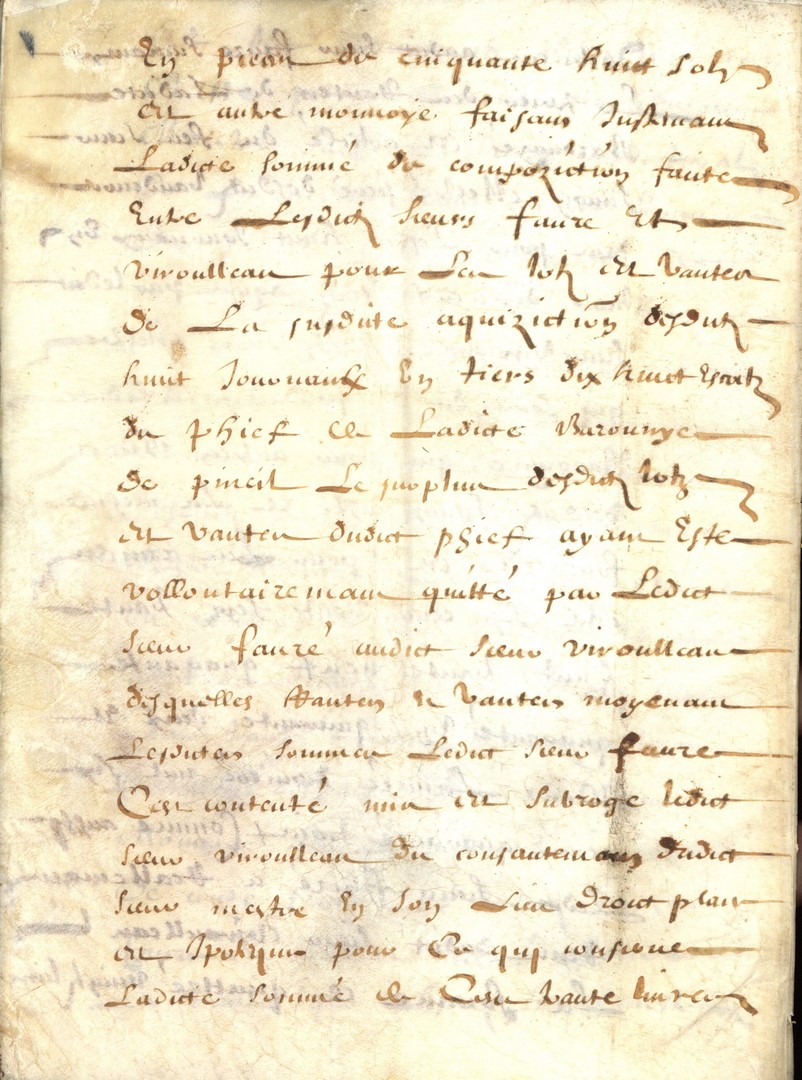 En pieces de cinquante huict solz
Et autre monnoye faisans Justemant
Ladicte sommé de compoziction faite
Entre Lesdictz sieurs fauré Et
viroulleau pour Les lotz et vantes
de La susdite aquiziction desdictz
huict Journaux En tiers dix huict Escatz
du phief de Ladicte Barounye
de Le surplus desdictz lotz
et vantes dudict phief ayant Esté
vollontairemant quitté par Ledict
sieur fauré audict sieur viroulleau
desquelles vantes moyenant
Lesdites sommes Ledict sieur faure
C'est contenté mis et subrogé ledict
sieur viroulleau du consantemant dudict
sieur En son Lieu droict place
et Ipoteque pour Ce qui consérne
Ladicte sommé de Cent vante livres